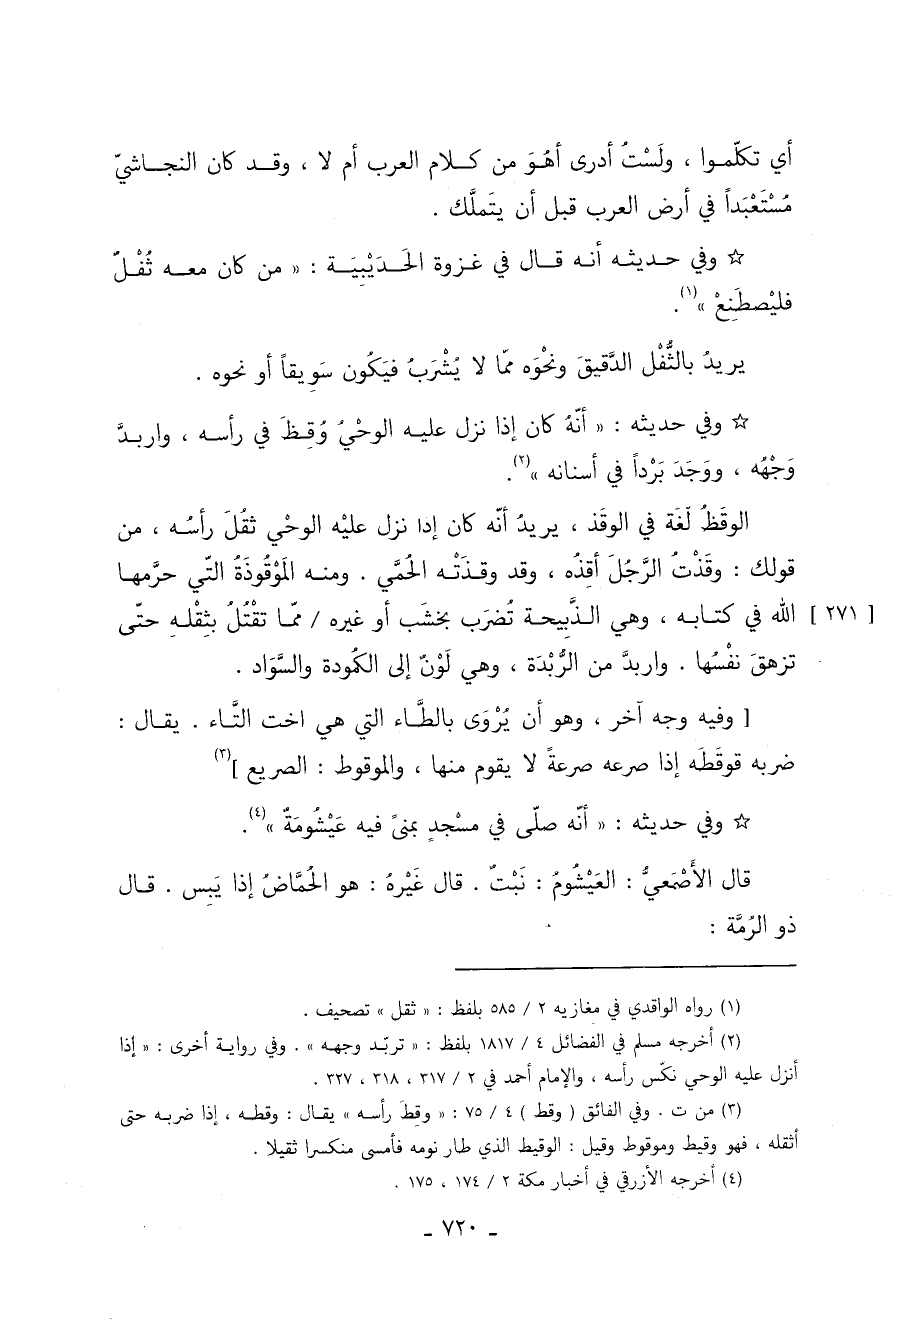 أي تكلّموا ، ولَسْتُ أدرى أهُوَ من كلام العرب أم لا ، وقد كان النجاشيّ
مُسْتَعْبَداً في أرض العرب قبل أن يتَملَّك .
☆ وفي حديثه أنه قال في غزوة الحَدَيْبِيَة : « من كان معه ثُفْلٌ
فليْصطَنِعْ »(١).
يريدُ بالثُّفْل الدَّقيقَ ونحْوَه ممّا لا يُشْرَبُ فيَكُون سَويقاً أو نحوه .
☆ وفي حديثه : « أنّهُ كان إذا نزل عليه الوحْيُ وُقِظَ في رأسه ، واربدَّ
وَجْهُه ، ووَجَدَ بَرْداً في أسنانه »(٢).
الوقَظُ لَغَة في الوقَذ ، يريدُ أنّه كان إدا نزل عليْه الوحْي ثقُلَ رأسُه ، من
قولك : وقَذْتُ الرَّجُلَ أقِذُه ، وقد وقذَتْه الحُمَّي . ومنه المَوْقُوذَةُ التّي حرَّمها
الله في كتابه ، وهي الذَّبيحة تُضرَب بخشَب أو غيره / ممّا تقْتُلُ بثقْلهِ حتّى [ ٢٧١ ]
تزهقَ نفْسُها . واربدَّ من الرُّبْدَة ، وهي لَوْنٌ إلى الكُودة والسَّوَاد .
[ وفيه وجه آخر ، وهو أن يُرْوَى بالطَّاء التي هي اخت التَّاء . يقال :
ضربه قوقَطَه إذا صرعه صرعةً لا يقوم منها ، والموقوط : الصريع ](٣)
☆ وفي حديثه : « أنّه صلّى في مسْجدٍ بمنىً فيه عَيْشُومَةٌ »(٤).
قال الأَصْمَعيُّ : العَيْشُومُ : نَبْتٌ . قال غَيْرهُ : هو الحُمَّاضُ إذا يَبِس . قال
ذو الرُمَّة :
(١) رواه الواقدي في مغازيه ٢ / ٥٨٥ بلفظ : « ثقل » تصحيف .
(٢) أخرجه مسلم في الفضائل ٤ / ١٨١٧ بلفظ : « تربّد وجهه » . وفي رواية أخرى : « إذا
أنزل عليه الوحي نكّس رأسه ، والإمام أحمد في ٢ / ٣١٧ ، ٣١٨ ، ٣٢٧ .
(٣) من ت . وفي الفائق ( وقط ) ٤ / ٧٥ : « وقِطَ رأسه » يقال : وقطه ، إذا ضربه حتى
أثقله ، فهو وقيط وموقوط وقيل : الوقيط الذي طار نومه فأمسى منكسرا ثقيلا .
(٤) أخرجه الأزرقي في أخبار مكة ٢ / ١٧٤ ، ١٧٥ .
ـ ٧٢٠ ـ